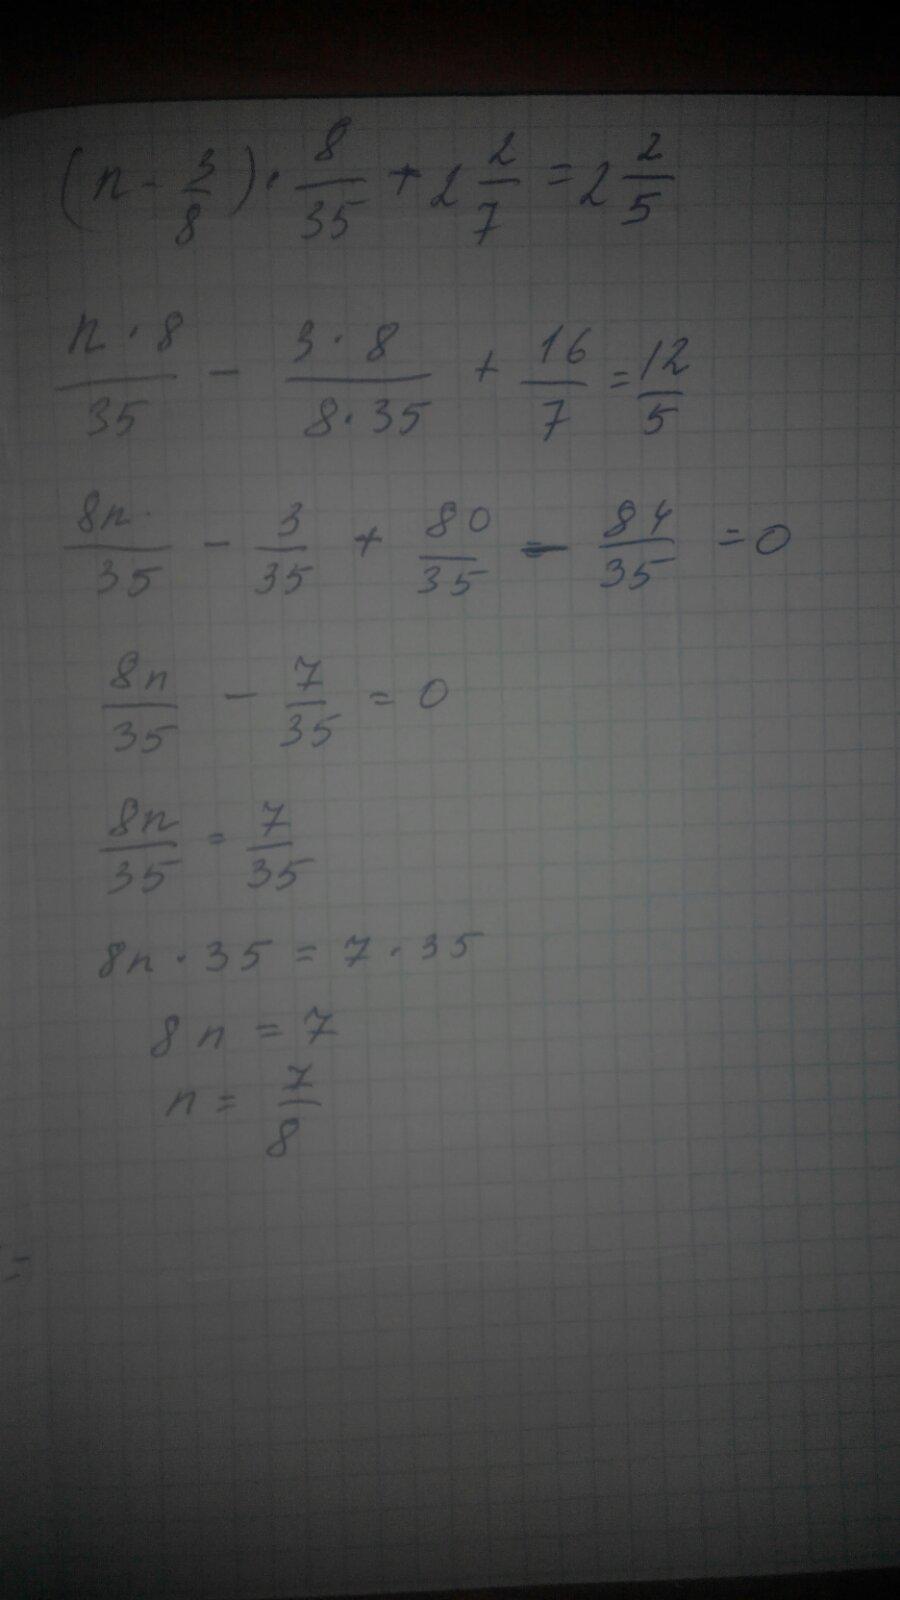 (n - 3/8) · 8/35 + 2 2/7 = 2 2/5
n · 8/35 - 3 · 8/8 · 35 + 16/7 = 12/5
8n/35 - 3/35 + 80/35 - 84/35 = 0
8n/35 - 7/35 = 0
8n/35 = 7/35
8n · 35 = 7 · 35
8n = 7
n = 7/8
=